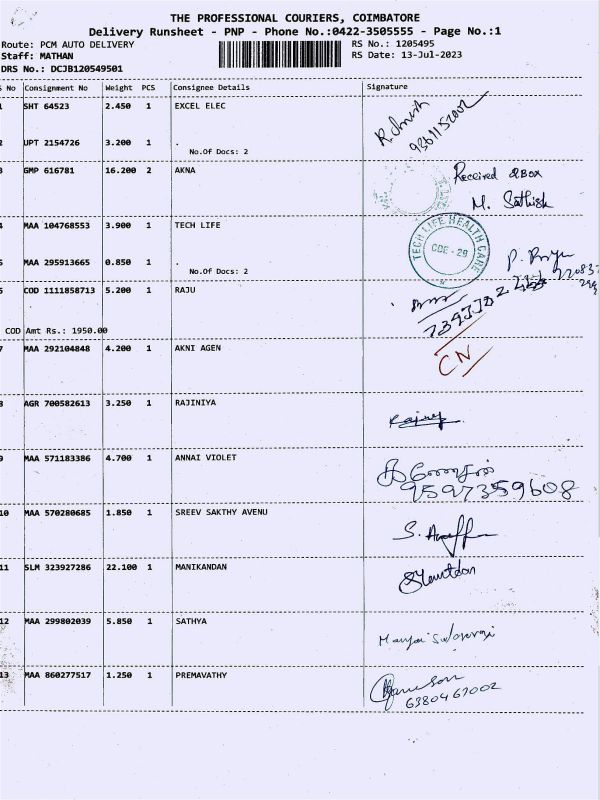 THE PROFESSIONAL COURIERS, COIMBATORE
Delivery Runsheet - PNP - Phone No.:0422-3505555 - Page No.:1
Route: PCM AUTO DELIVERY
RS No.: 1205495
Staff: MATHAN
RS Date: 13-Jul-2023
DRS No.: DCJB120549501
No Consignment No Weight PCS Consignee Details Signature
1 SHT 64523 2.450 1 EXCEL ELEC
2 UPT 2154726 3.200 1 .
No.Of Docs: 2
3 GMP 616781 16.200 2 AKNA
Received 2BOX
M. Sathish
4 MAA 104768553 3.900 1 TECH LIFE
TECH LIFE HEALTH CARE
CBE - 29
5 MAA 295913665 0.850 1 .
No.Of Docs: 2
6 COD 1111858713 5.200 1 RAJU
COD Amt Rs.: 1950.00
7 MAA 292104848 4.200 1 AKNI AGEN
CN
8 AGR 700582613 3.250 1 RAJINIYA
9 MAA 571183386 4.700 1 ANNAI VIOLET
9597359608
10 MAA 570280685 1.850 1 SREEV SAKTHY AVENU
11 SLM 323927286 22.100 1 MANIKANDAN
12 MAA 299802039 5.850 1 SATHYA
13 MAA 860277517 1.250 1 PREMAVATHY
6380467002